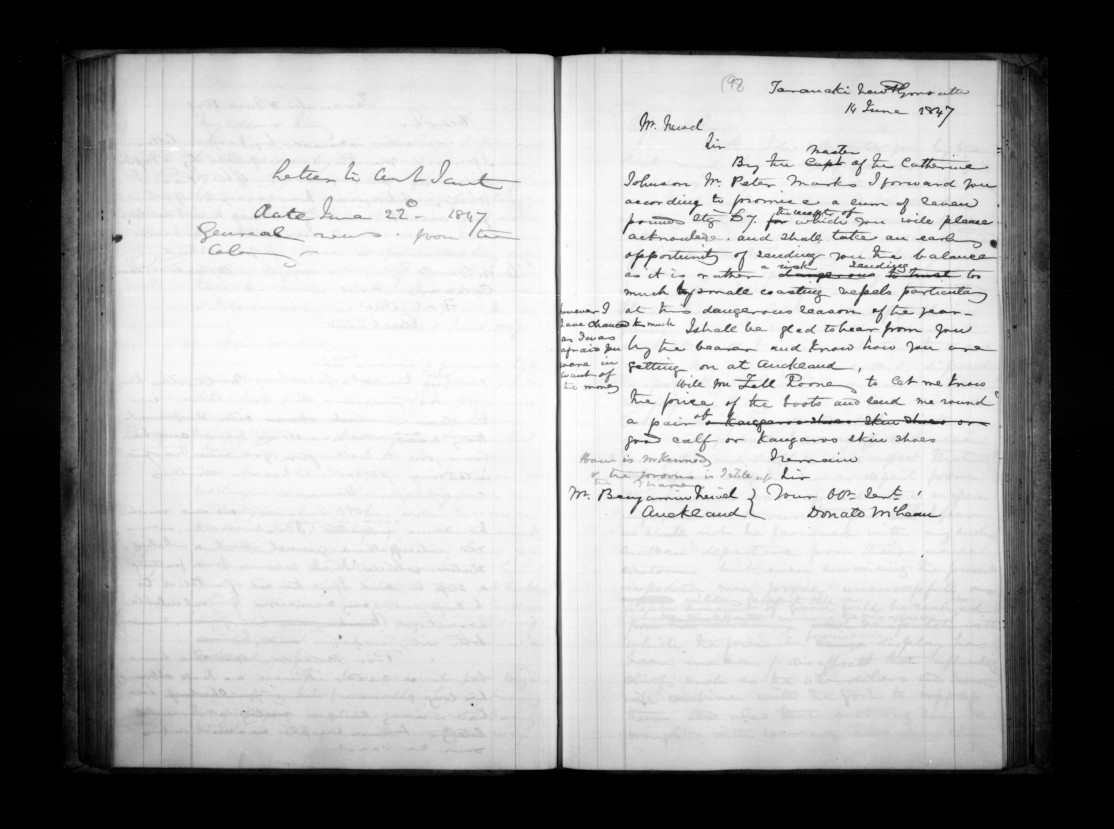 Letter to Aunt Janet
date June 22d - 1847
General news from the
Colony -
(98
Taranaki New Plymouth
14 June 1847
Mr. Newd
Sir
master
By the Capt of the Catherine
Johnson Mr. Peter Marks I forward you
according to promise a sum of seven
the receipt of
pounds Stg £7. for which you will please
acknowledge. and shall take an early
opportunity of sending you the balance
a risk sending
as it is rather dangerous to trust too
much by small coasting vessels particularly
at this dangerous season of the year -
however I
have chanced
as I was
afraid you
were in
want of
the money
this much I shall be glad to hear from you
by the bearer and know how you are
getting on at Auckland,
Will you tell Rooney to let me know
the price of the boots and send me round
a pair of Kangaroo shoes Skin shoes or
good calf or Kangaroo skin shoes
How is McKennedy I remain
& the is still up Sir
Mr. Benjamin Newd } Your Obt Sert
Auckland Donald McLean